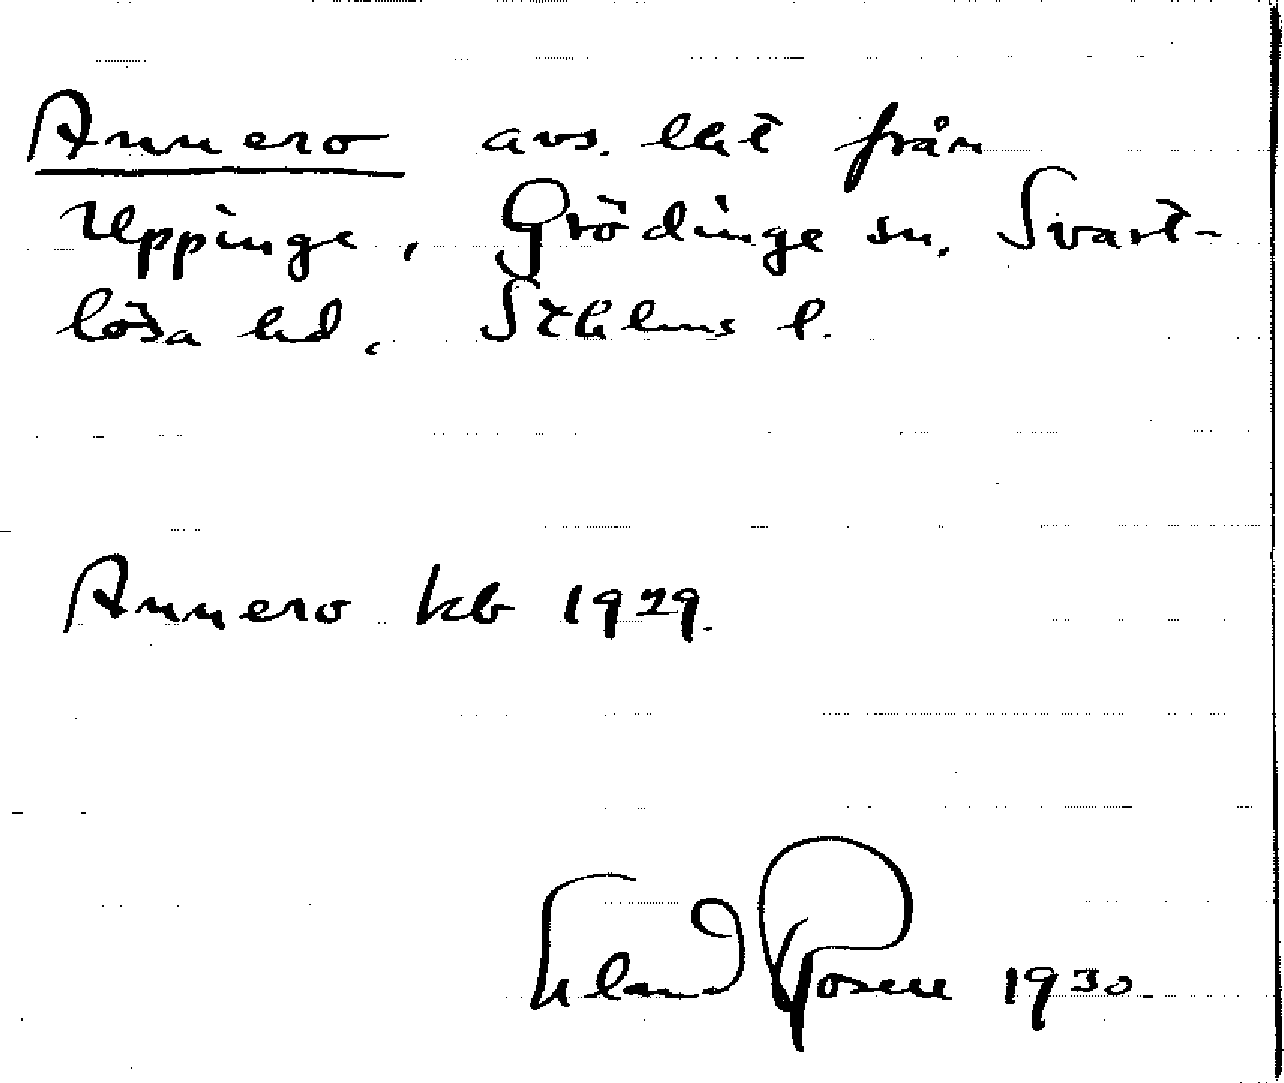 Annero avs. lht från
Uppinge, Grödinge sn. Svart-
lösa hd, Sthlms l.
Annero kb 1929.
Erland Rosell 1930